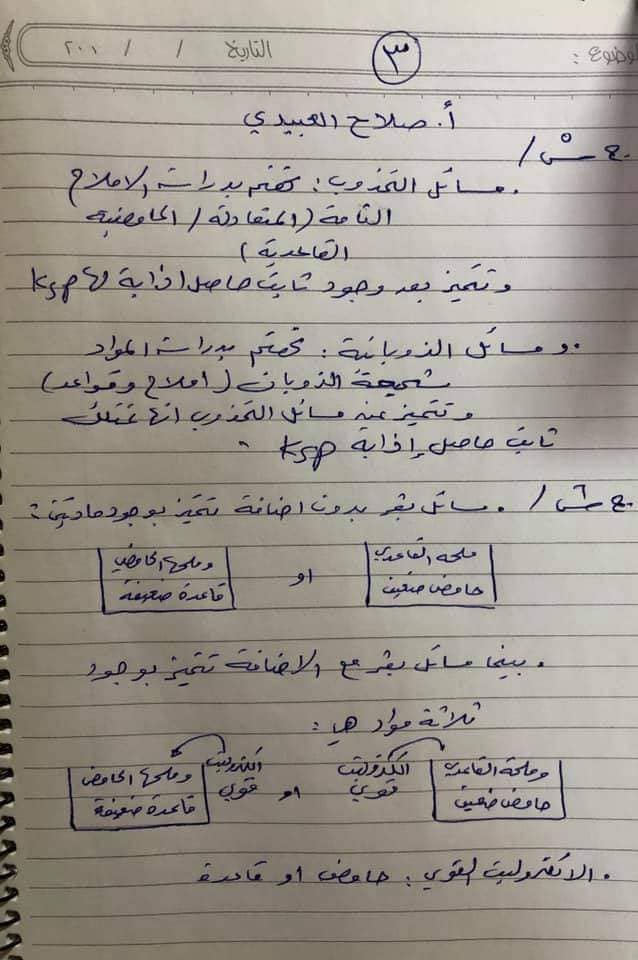 الموضوع : ٣ التاريخ / / ٢٠٠١
أ. صلاح العبيدي
ج س٥/
. مسائل التمذوب : تهتم بدراسة الاملاح
التامة (المتعادلة / الحامضية
القاعدية)
وتتميز بعدم وجود ثابت حاصل اذابة لها Ksp
. ومسائل الذوبانية : تهتم بدراسة المواد
شحيحة الذوبان (املاح وقواعد)
وتتميز عن مسائل التمذوب انها تمتلك
ثابت حاصل إذابة Ksp .
ج س٦/ . مسائل بفر بدون اضافة تتميز بوجود مادتين :
ملحه القاعدي او وملحها الحامضي
حامض ضعيف قاعدة ضعيفة
. بينما مسائل بفر مع الاضافة تتميز بوجود
ثلاثة مواد هي :
وملحه القاعدي الكتروليت الكتروليت وملحها الحامض
حامض ضعيف قوي او قوي قاعدة ضعيفة
. الالكتروليت القوي : حامض او قاعدة